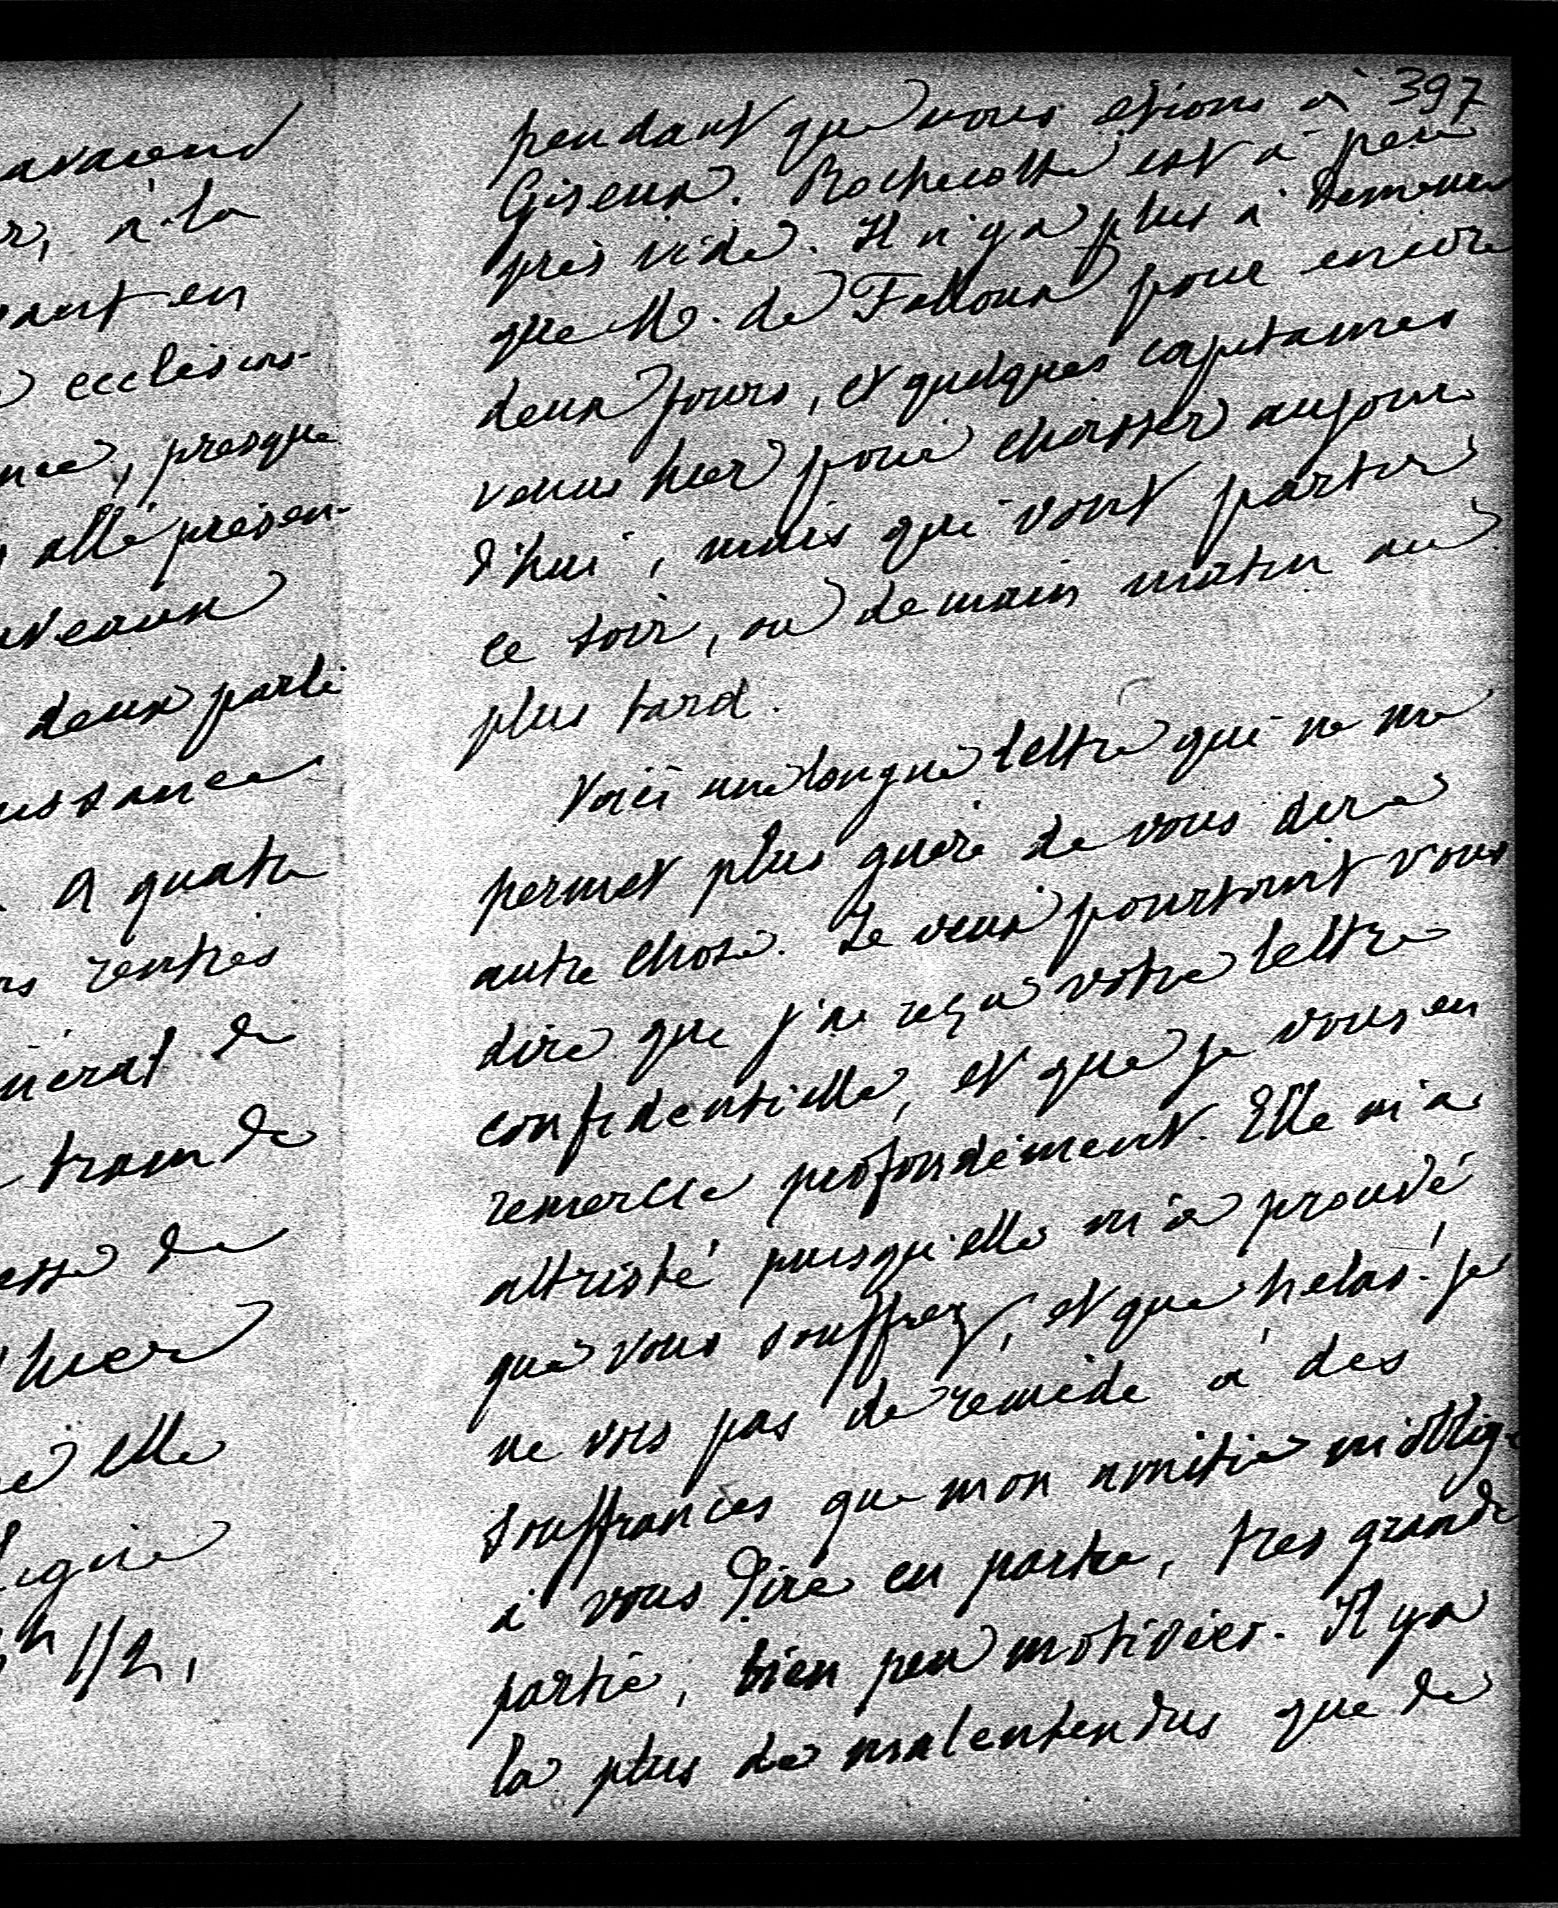 avaient
à la
en
ecclésias-
presque
allé présen-
veaux
deux parle
issance
A quatre
rentrés
néral de
train de
de
hier
elle
1/2,
397
pendant que nous étions à
Giseux. Rochecotte est à peu
près vide. Il n'y a plus à demeurer
que M. de Falloux pour encore
deux jours, et quelques capitaines
venus hier pour chasser aujour
d'hui, mais qui vont partir
ce soir, ou demain matin au
plus tard.
Voici une longue lettre qui ne me
permet plus guère de vous dire
autre chose. Je veux pourtant vous
dire que j'ai reçu votre lettre
confidentielle, et que je vous en
remercie profondément. Elle m'a
attristé puisqu'elle m'a prouvé
que vous souffrez, et que hélas! je
ne vois pas de remède à des
souffrances que mon amitié m'oblige
à vous dire en partie, très grande
partie, bien peu motivées. Il y a
là plus de malentendus que de